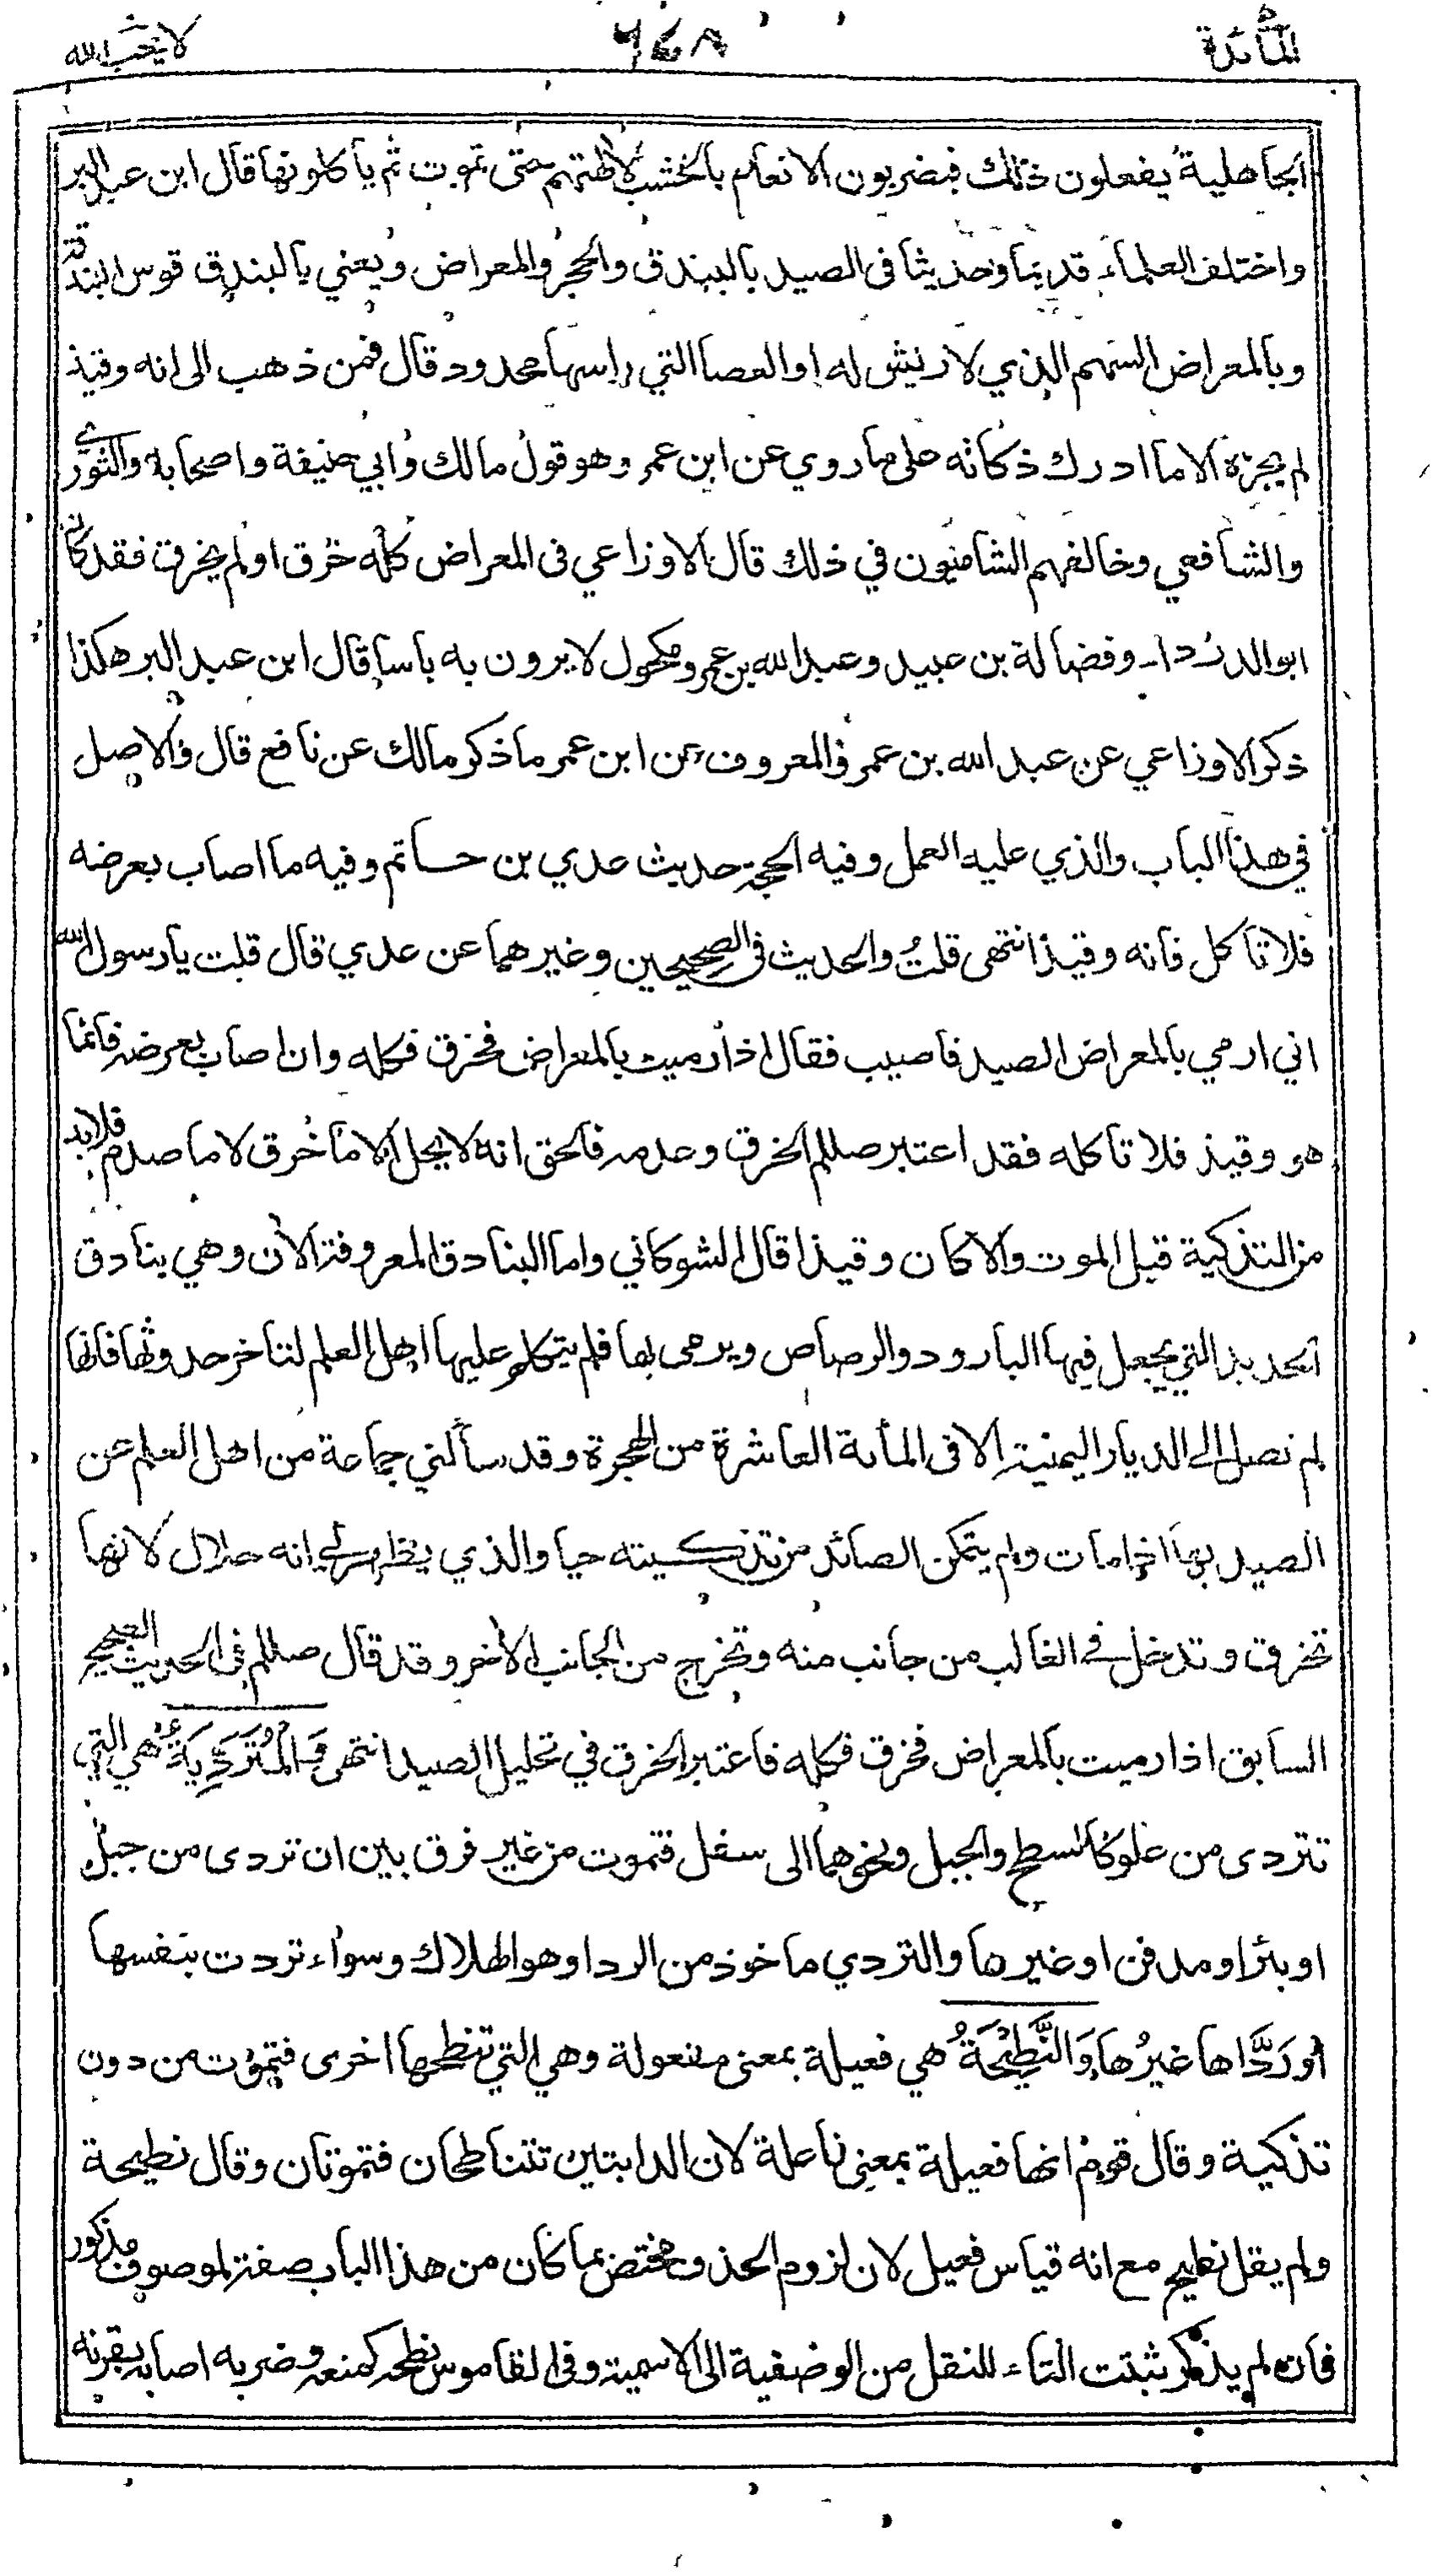 المائدة
٦٤٨
لا يحب الله
الجاهلية يفعلون ذلك فيضربون الانعام بالخشب لآلهتهم حتى تموت ثم يأكلونها قال ابن عبد البر
واختلف العلماء قديما وحديثا في الصيد بالبندق والحجر والمعراض ويعني بالبندق قوس البندقة
وبالمعراض السهم الذي لا ريش له او العصا التي راسها محدود قال فمن ذهب الى انه وقيذ
لم يجزه الا ما ادرك ذكاته على ما روي عن ابن عمر وهو قول مالك وابي حنيفة واصحابه والثوري
والشافعي وخالفهم الشاميون في ذلك قال الاوزاعي في المعراض كله خرق او لم يخرق فقد كان
ابو الدرداء وفضالة بن عبيد وعبد الله بن عمر ومكحول لا يرون به باسا قال ابن عبد البر هكذا
ذكر الاوزاعي عن عبد الله بن عمر والمعروف عن ابن عمر ما ذكر مالك عن نافع قال والاصل
في هذا الباب والذي عليه العمل وفيه الحجة حديث عدي بن حاتم وفيه ما اصاب بعرضه
فلا تاكل فانه وقيذ انتهى قلت والحديث في الصحيحين وغيرهما عن عدي قال قلت يا رسول الله
اني ارمي بالمعراض الصيد فاصيب فقال اذا رميت بالمعراض فخزق فكله وان اصاب بعرضه فانما
هو وقيذ فلا تاكله فقد اعتبر صللم الخرق وعدمه فالحق انه لا يحل الا ما خرق لا ما صدم فلا بد
من التذكية قبل الموت والا كان وقيذا قال الشوكاني واما البنادق المعروفة الآن وهي بنادق
الحديد التي يجعل فيها البارود والرصاص ويرمى بها فلم يتكلم عليها اهل العلم لتأخر حدوثها فانها
لم تصل الى الديار اليمنية الا في المأية العاشرة من الهجرة وقد سألني جماعة من اهل العلم عن
الصيد بها اذا مات ولم يتمكن الصائد من تذكيته حيا والذي يظهر لي انه حلال لانها
تخرق وتدخل في الغالب من جانب منه وتخرج من الجانب الآخر وقد قال صللم في الحديث الصحيح
السابق اذا رميت بالمعراض فخزق فكله فاعتبر الخرق في تحليل الصيد انتهى وَالْمُتَرَدِّيَةُ هي التي
تتردى من علو كالسطح والجبل ونحوهما الى سفل فتموت من غير فرق بين ان تردى من جبل
او بئر او مدفن او غيرها والتردي ماخوذ من الردا وهو الهلاك وسواء تردت بنفسها
أو رَدَّاها غيرُها وَالنَّطِيْحَةُ هي فعيلة بمعنى مفعولة وهي التي تنطحها اخرى فتموت من دون
تذكية وقال قوم انها فعيلة بمعنى فاعلة لان الدابتين تتناطحان فتموتان وقال نطيحة
ولم يقل نطيح مع انه قياس فعيل لان لزوم الحذف مختص بما كان من هذا الباب صفة لموصوف مذكور
فان لم يذكر ثبتت التاء للنقل من الوصفية الى الاسمية وفي القاموس نطحه كمنعه وضربه اصابه بقرنه